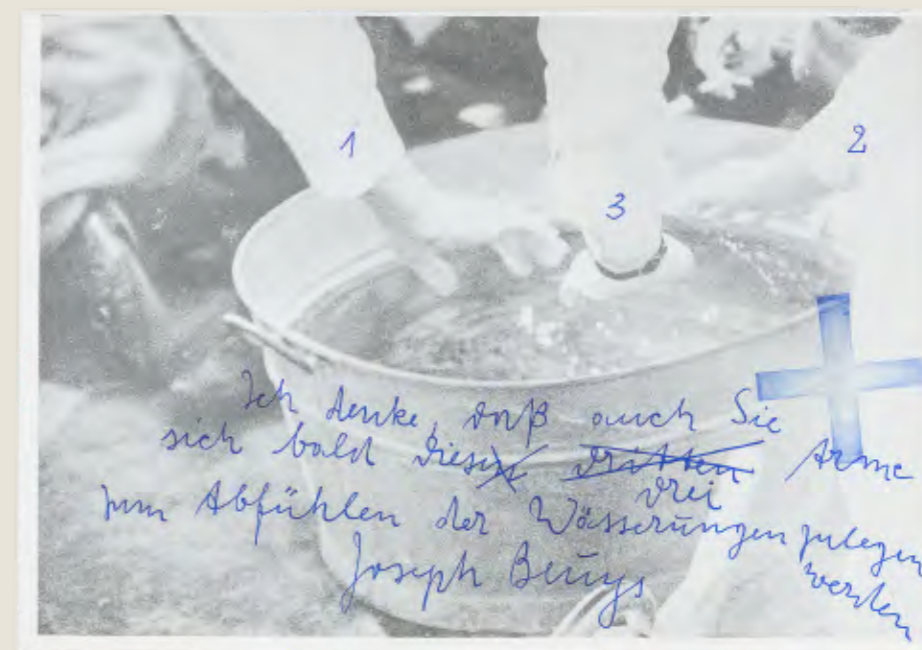 1
2
3
Ich denke, daß auch Sie
sich bald diesen dritten Arme
drei
zum Abfühlen der Wässerungen zulegen
werden
Joseph Beuys